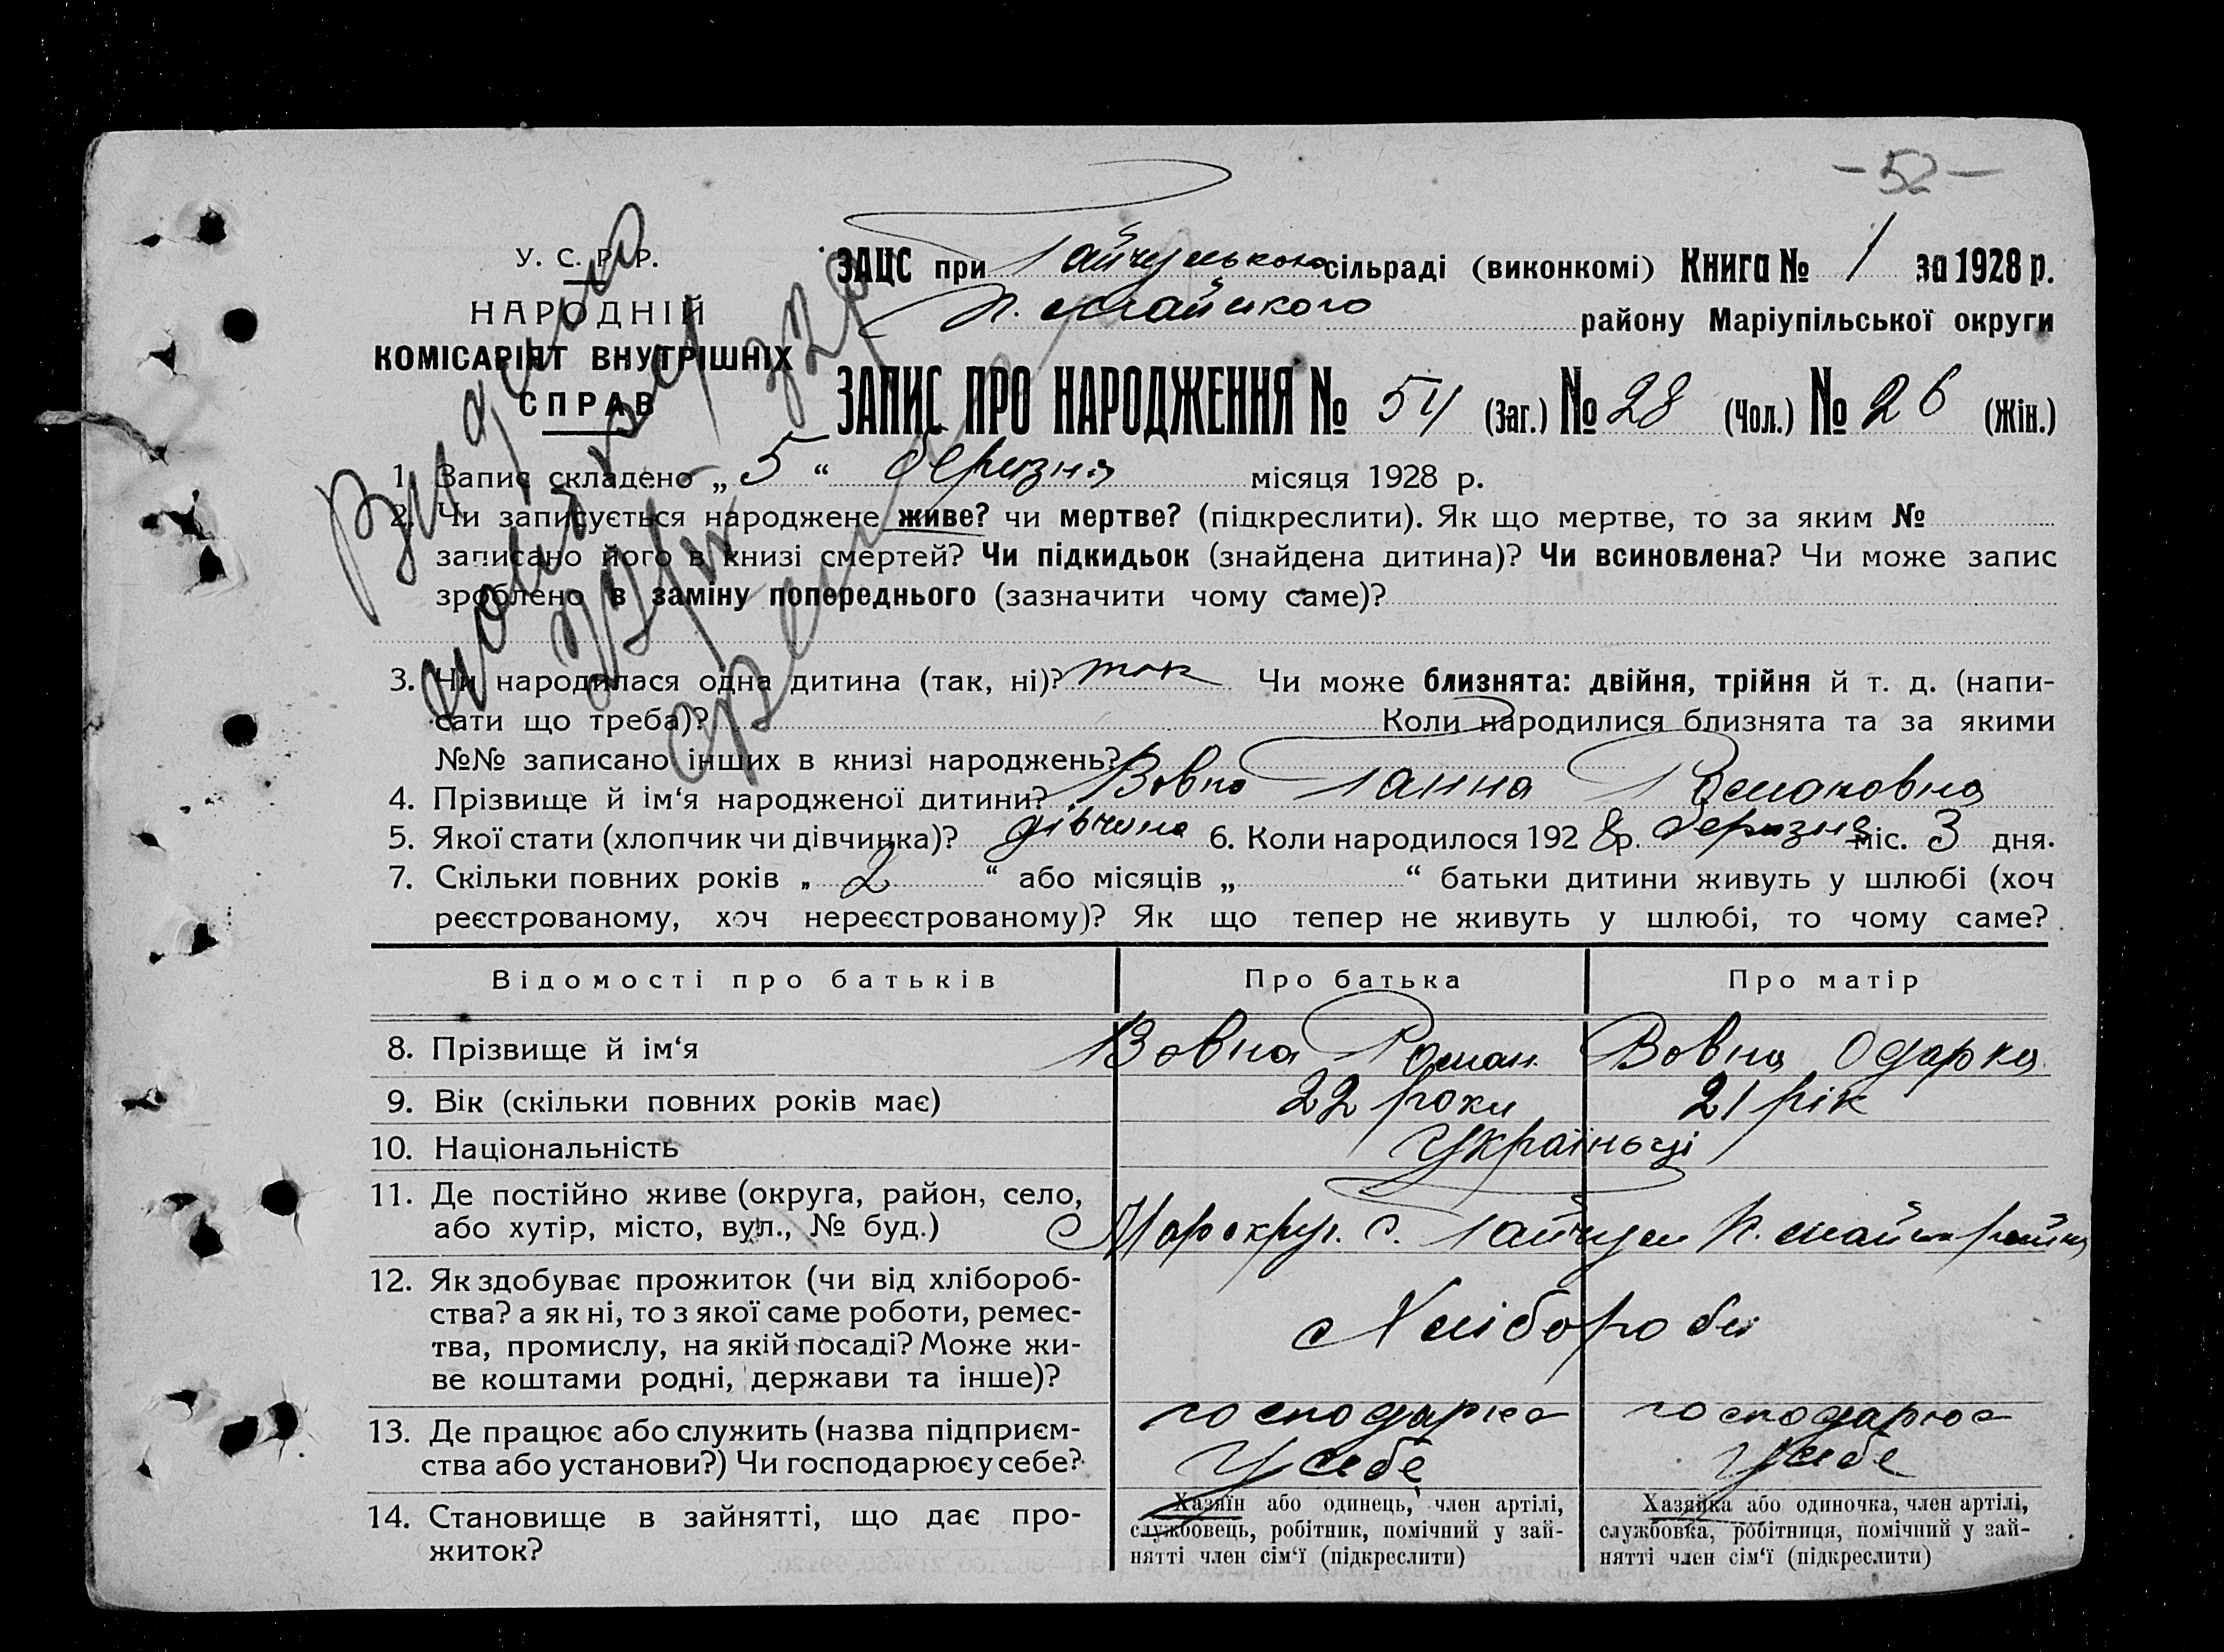 - 52 -
У. С. Р. Р.
НАРОДНІЙ
КОМІСАРІЯТ ВНУТРІШНІХ
СПРАВ
ЗАЦС при Гайчульського сільраді (виконкомі) Книга № 1 за 1928 р.
району Маріупільської округи
ЗАПИС ПРО НАРОДЖЕННЯ № 54 (Заг.) № 28 (Чол.) № 26 (Жін.)
1. Запис складено „ 5 “ березня місяця 1928 р.
2. Чи записується народжене живе? чи мертве? (підкреслити). Як що мертве, то за яким №
записано його в книзі смертей? Чи підкидьок (знайдена дитина)? Чи всиновлена? Чи може запис
зроблено в заміну попереднього (зазначити чому саме)?
3. Чи народилася одна дитина (так, ні)? так Чи може близнята: двійня, трійня й т. д. (напи-
сати що треба)? Коли народилися близнята та за якими
№№ записано інших в книзі народжень?
4. Прізвище й ім‘я народженої дитини? Вовна Ганна Романовна
5. Якої стати (хлопчик чи дівчинка)? дівчина 6. Коли народилося 192 8 р. березня міс. 3 дня.
7. Скільки повних років „ 2 “ або місяців „ “ батьки дитини живуть у шлюбі (хоч
реєстрованому, хоч нереєстрованому)? Як що тепер не живуть у шлюбі, то чому саме?
Відомості про батьків Про батька Про матір
8. Прізвище й ім‘я Вовна Роман Вовна Одарка
9. Вік (скільки повних років має) 22 роки 21 рік
10. Національність Україньці
11. Де постійно живе (округа, район, село,
або хутір, місто, вул., № буд.) с. Гайчул
12. Як здобуває прожиток (чи від хлібороб-
ства? а як ні, то з якої саме роботи, ремес-
тва, промислу, на якій посаді? Може жи-
ве коштами родні, держави та інше)?
Хлібороби
13. Де працює або служить (назва підприєм-
ства або установи?) Чи господарює у себе?
господарює господарює
у себе у себе
14. Становище в зайнятті, що дає про-
житок?
Хазяїн або одинець, член артілі,
службовець, робітник, помічний у зай-
нятті член сім‘ї (підкреслити)
Хазяйка або одиночка, член артілі,
службовка, робітниця, помічний у зай-
нятті член сім‘ї (підкреслити)